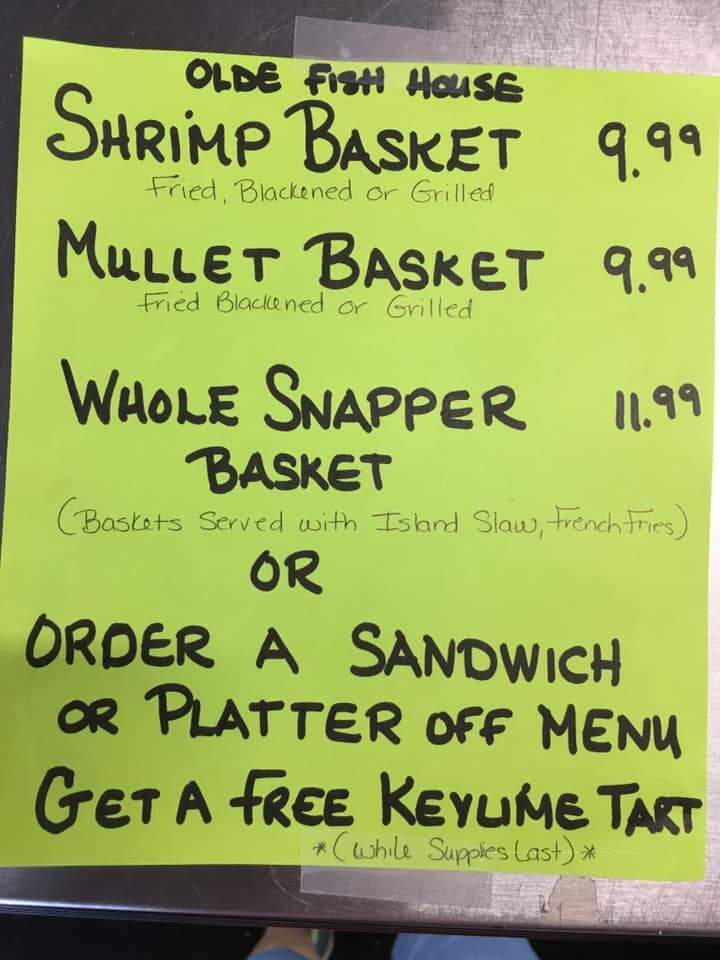 OLDE FISH HOUSE
SHRIMP BASKET 9.99
Fried, Blackened or Grilled
MULLET BASKET 9.99
Fried Blackened or Grilled
WHOLE SNAPPER 11.99
BASKET
(Baskets Served with Island Slaw, French Fries)
OR
ORDER A SANDWICH
OR PLATTER OFF MENU
GET A FREE KEYLIME TART
*(While Supplies Last)*